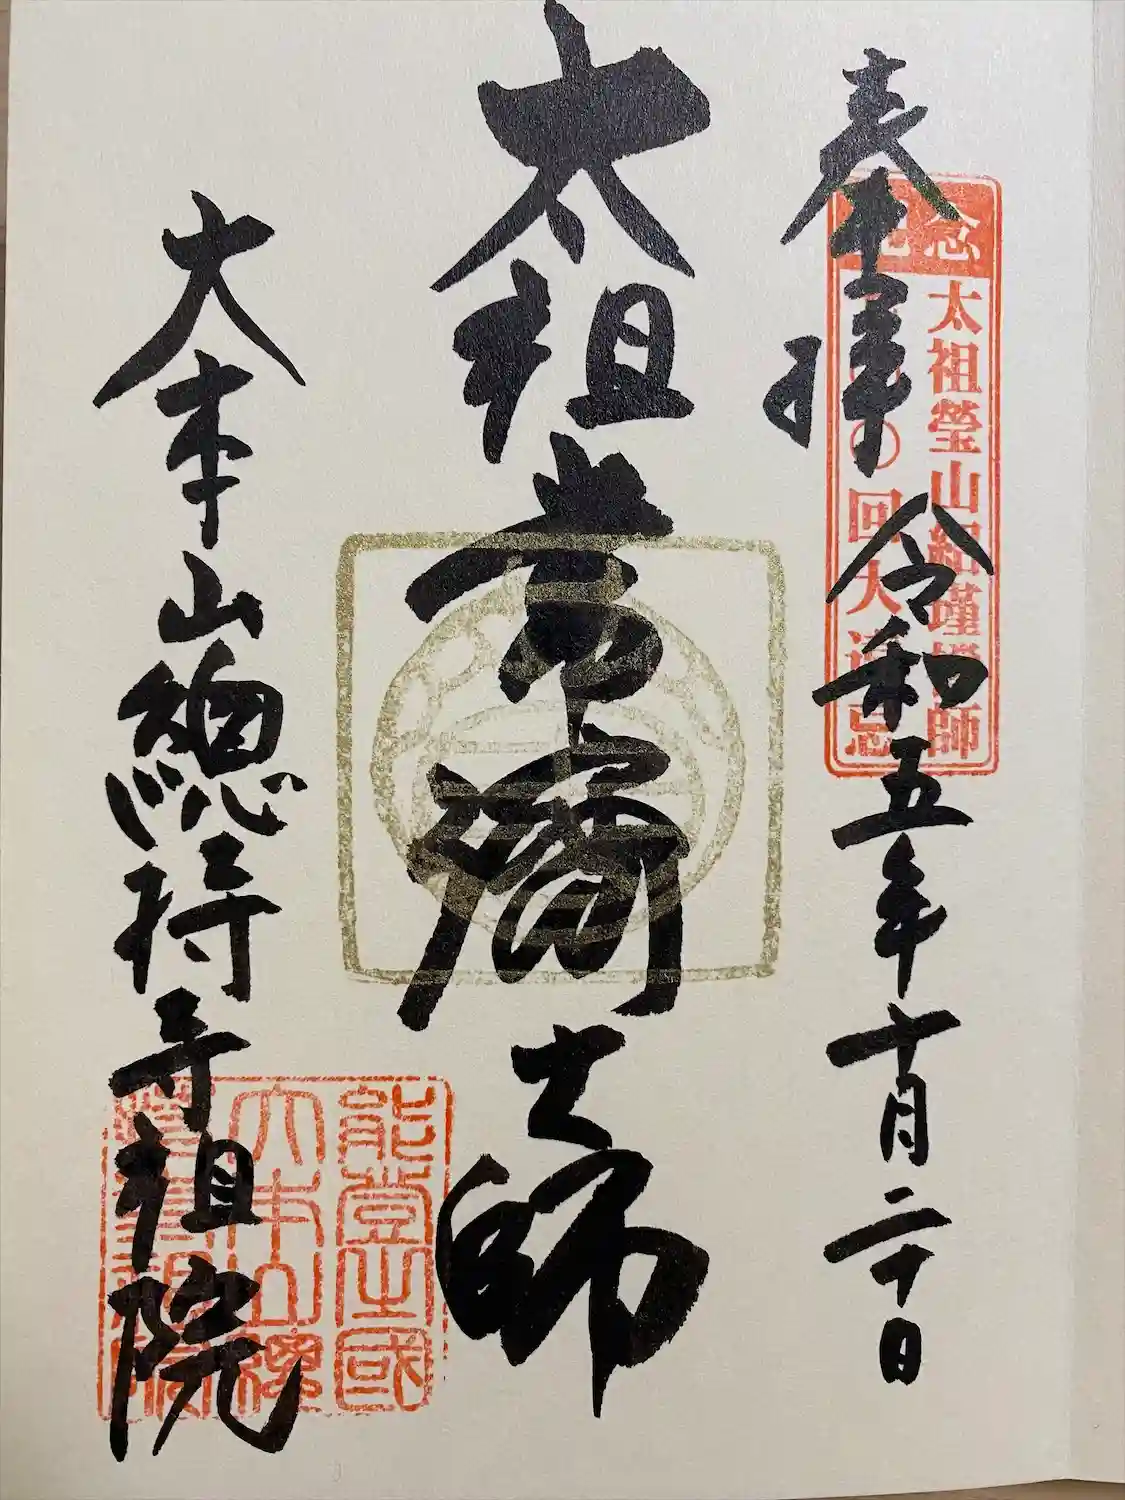 奉拝
令和五年十月二十日
念
太祖瑩山紹瑾禅師
回大遠忌
太祖常済大師
大本山總持寺祖院
能登之國
大本山